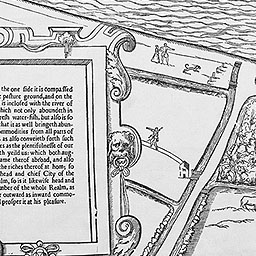 the one side it is compassed
pasture ground, and on the
is inclosed with the river of
hich not only aboundeth in
resh water-fish, but also is so
hat it is as well bringeth abun-
ommodities from all parts of
as also conveieth forth such
es as the plentifulnesse of our
th yeild us: which both aug-
ame therof abroad, and also
the riches therof at hom; so
head and chief City of the
lm, so is it likewise head and
mber of the whole Realm, as
outward as inward commo-
d prosper it at his pleasure.